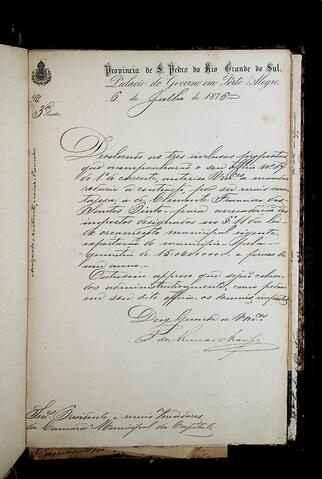 Provincia de S. Pedro do Rio Grande do Sul.
Palacio do Governo em Porto Alegre,
6 de Julho de 1876
3ª Secção
Devolvendo as tres inclusas propostas
que acompanharão o seu officio nº
de 1 do corrente, autoriso Vmces a mandar
reduzir a contracto por ser mais van-
tajosa, a de Clemente Francisco dos
Santos Pinto para arrecadação dos
impostos designados no § 11 da lei
do orçamento municipal vigente,
exportação do municipio pela
quantia de e prazo de
um anno.
Outrosim approvo que sejão cobra-
dos administrativamente, como pedem
em seu dito officio os demais impostos.
Deos Guarde a Vmces
Snres Presidente e mais Vereadores
da Camara Municipal da Capital.